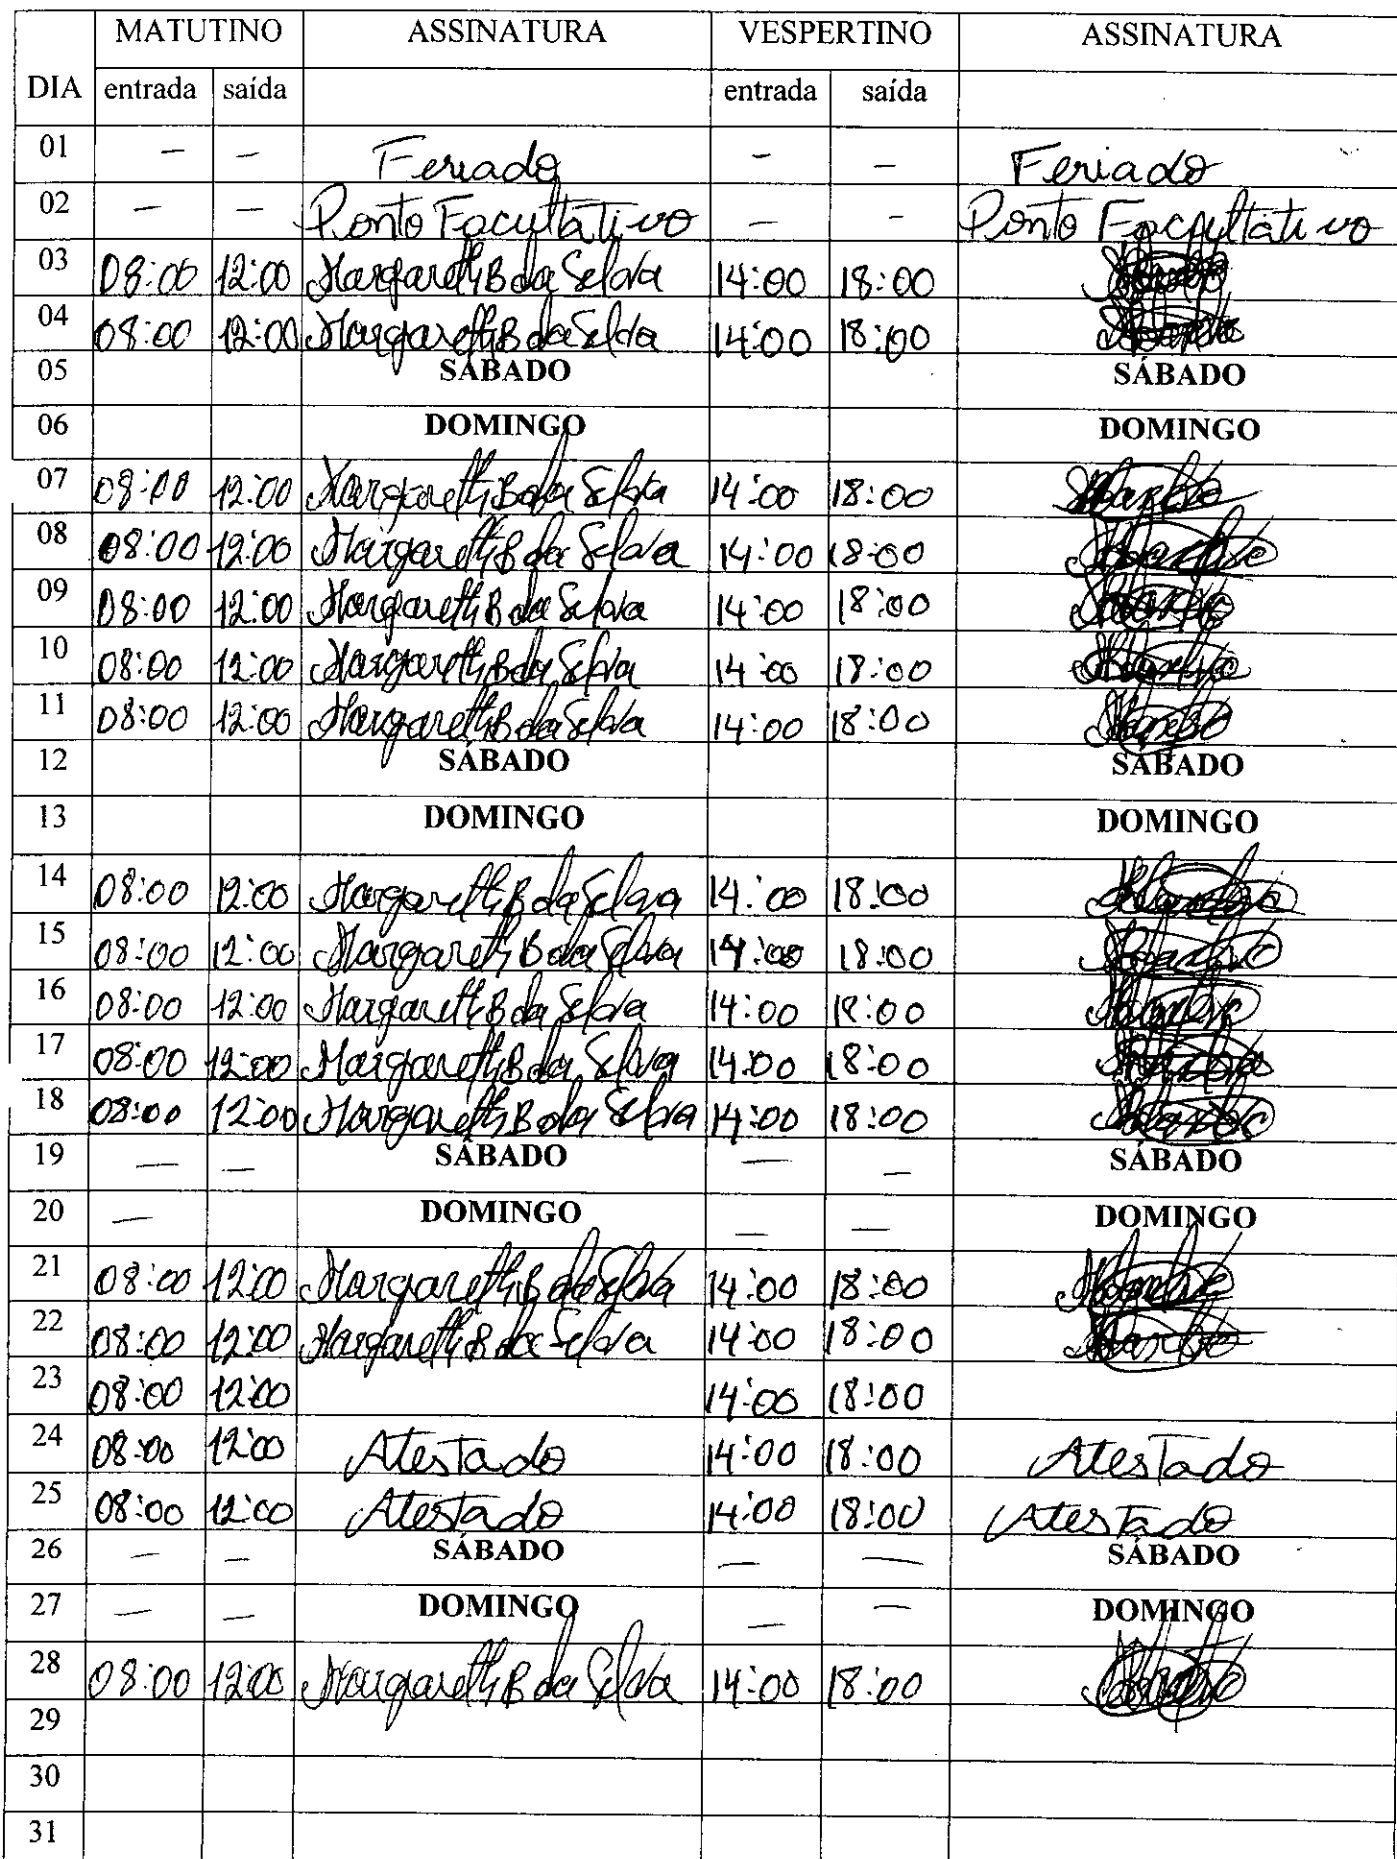 MATUTINO ASSINATURA VESPERTINO ASSINATURA
DIA entrada saída entrada saída
01 - - Feriado - - Feriado
02 - - Ponto Facultativo - - Ponto Facultativo
03 08:00 12:00 Margareth B da Selva 14:00 18:00
04 08:00 12:00 Margareth B da Selva 14:00 18:00
05 SÁBADO SÁBADO
06 DOMINGO DOMINGO
07 08:00 12:00 Margareth B da Selva 14:00 18:00
08 08:00 12:00 Margareth B da Selva 14:00 18:00
09 08:00 12:00 Margareth B da Selva 14:00 18:00
10 08:00 12:00 Margareth B da Selva 14:00 18:00
11 08:00 12:00 Margareth B da Selva 14:00 18:00
12 SÁBADO SÁBADO
13 DOMINGO DOMINGO
14 08:00 12:00 Margareth B da Selva 14:00 18:00
15 08:00 12:00 Margareth B da Selva 14:00 18:00
16 08:00 12:00 Margareth B da Selva 14:00 18:00
17 08:00 12:00 Margareth B da Selva 14:00 18:00
18 08:00 12:00 Margareth B da Selva 14:00 18:00
19 - - SÁBADO - - SÁBADO
20 - DOMINGO - - DOMINGO
21 08:00 12:00 Margareth B da Selva 14:00 18:00
22 08:00 12:00 Margareth B da Selva 14:00 18:00
23 08:00 12:00 14:00 18:00
24 08:00 12:00 Atestado 14:00 18:00 Atestado
25 08:00 12:00 Atestado 14:00 18:00 Atestado
26 - - SÁBADO - - SÁBADO
27 - - DOMINGO - - DOMINGO
28 08:00 12:00 Margareth B da Selva 14:00 18:00
29
30
31